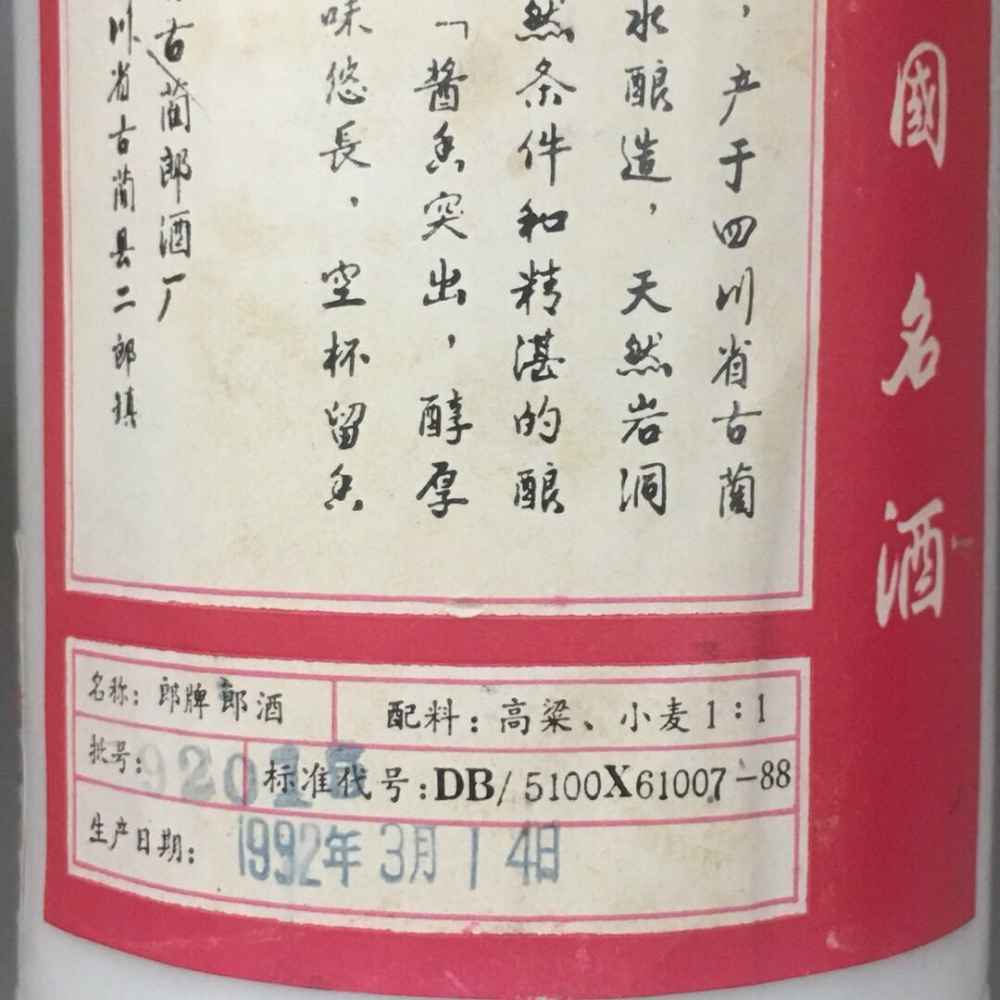 國名酒
，产于四川省古蔺
水酿造，天然岩洞
然条件和精湛的酿
「酱香突出，醇厚
味悠長，空杯留香
古蔺郎酒厂
川省古蔺县二郎镇
名称：郎牌郎酒
配料：高粱、小麦1：1
批号：
标准代号：DB/5100X61007-88
生产日期：1992年3月14日